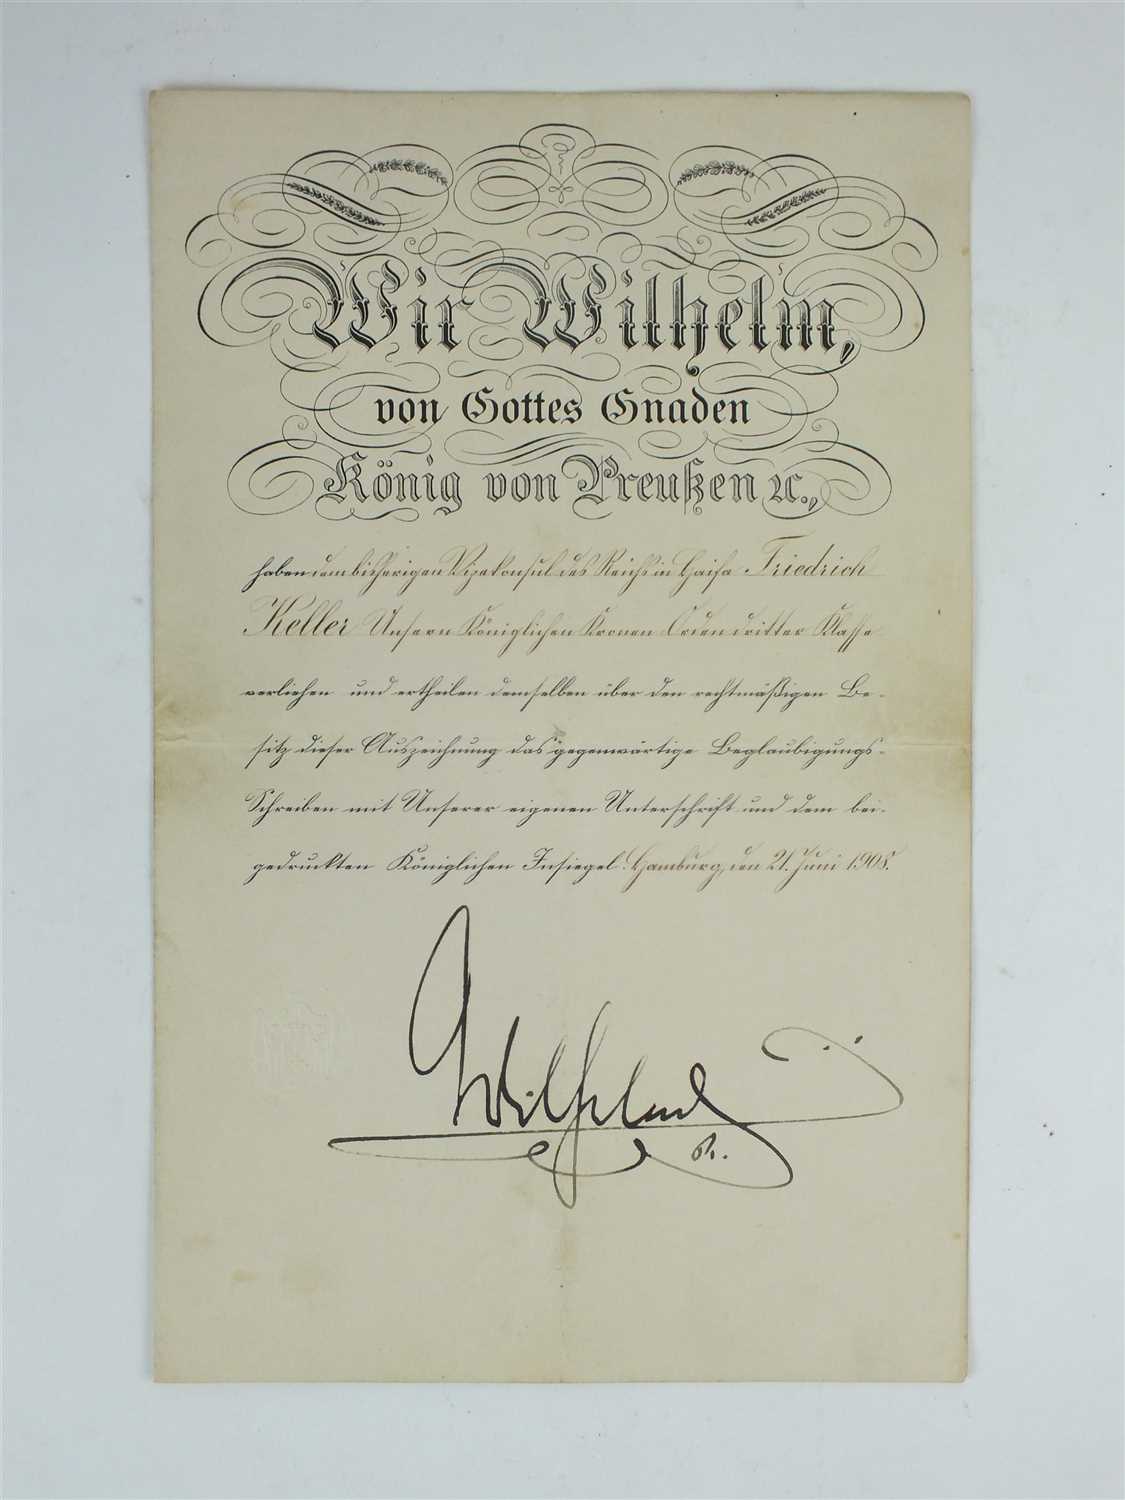 Wir Wilhelm,
von Gottes Gnaden
König von Preußen ꝛc.,
haben dem bisherigen Vizekonsul des Reichs in Haifa Friedrich
Keller Unsern Königlichen Kronen Orden dritter Klasse
verliehen und ertheilen demselben über den rechtmäßigen Be-
sitz dieser Auszeichnung das gegenwärtige Beglaubigungs-
Schreiben mit Unserer eigenen Unterschrift und dem bei-
gedruckten Königlichen Insiegel. Hamburg, den 21. Juni 1908.
Wilhelm
R.